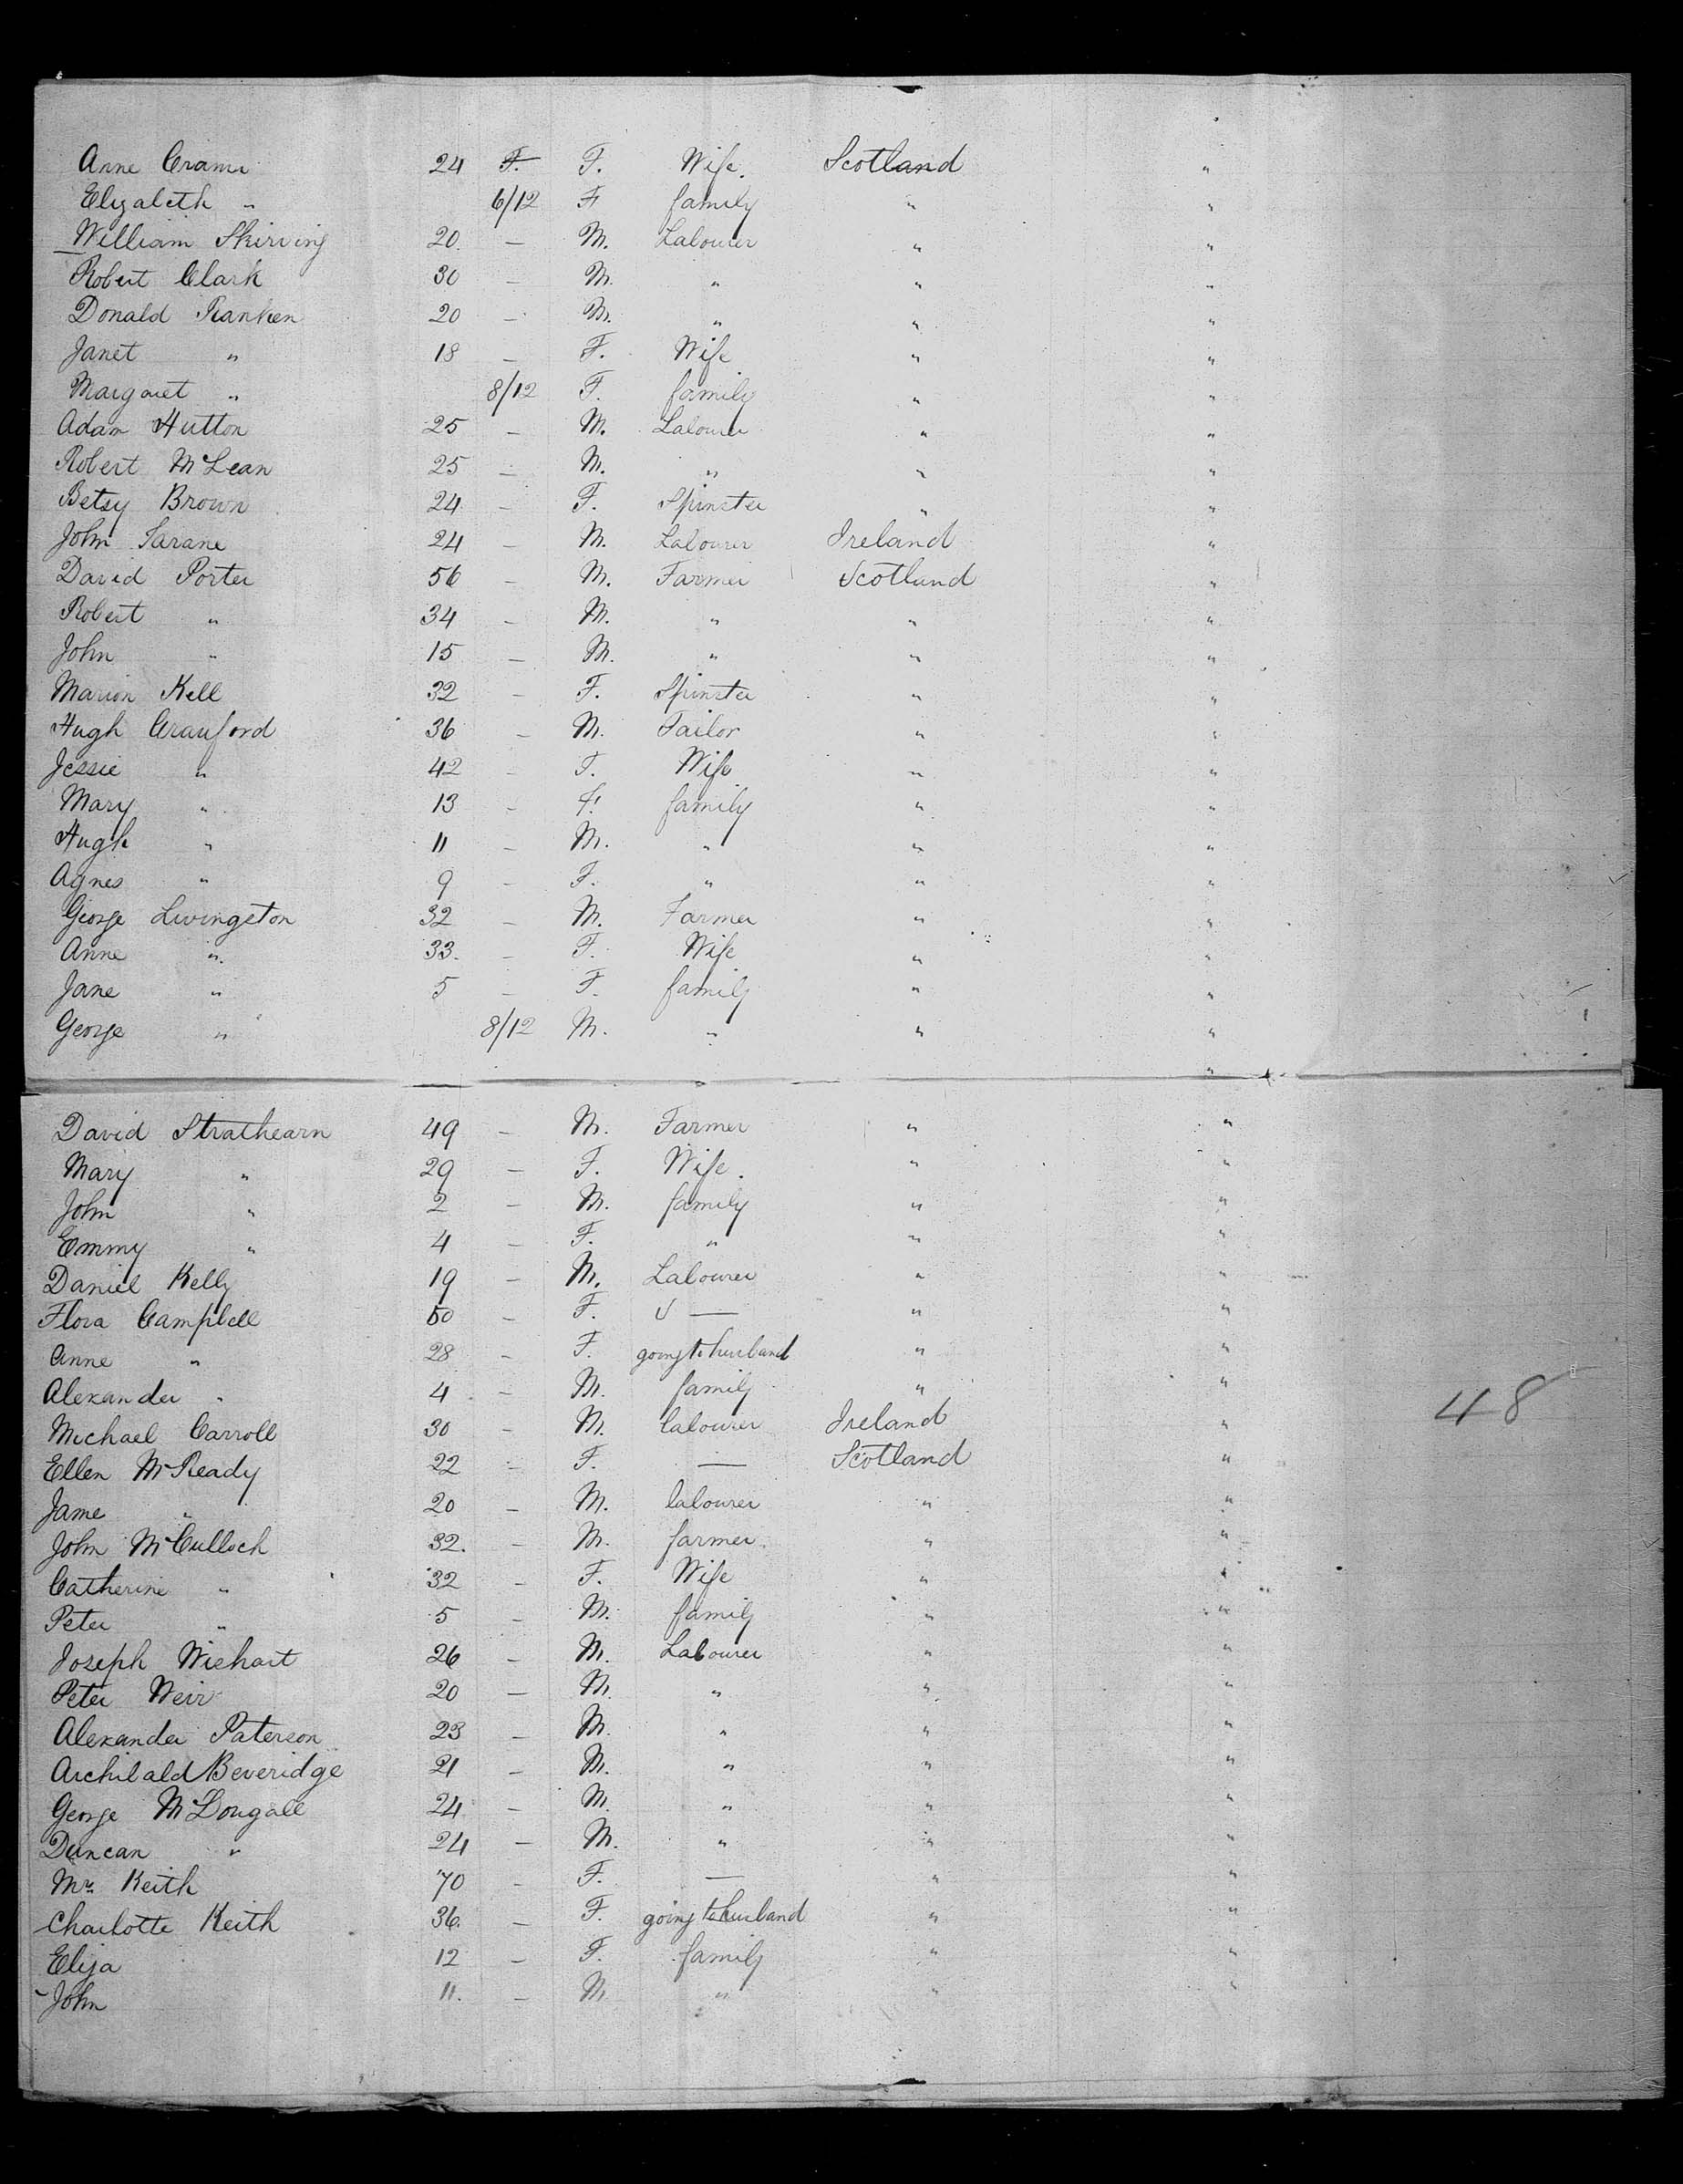 Anne Crame 24 F. F. Wife. Scotland "
Elizabeth " 6/12 F family " "
William Skirving 20 — M. Labourer " "
Robert Clark 30 — M. " " "
Donald Ranken 20 — M. " " "
Janet " 18 — F. Wife " "
Margaret " 8/12 F. family " "
Adam Hutton 25 — M. Labourer " "
Robert McLean 25 — M. " " "
Betsy Brown 24 — F. Spinster " "
John 24 — M. Labourer Ireland "
David Porter 56 — M. Farmer Scotland "
Robert " 34 — M. " " "
John " 15 — M. " " "
Marion Kell 32 — F. Spinster " "
Hugh Crauford 36 — M. Tailor " "
Jessie " 42 — F. Wife " "
Mary " 13 — F. family " "
Hugh " 11 — M. " " "
Agnes " 9 — F. " " "
George Livingston 32 — M. Farmer " "
Anne " 33. — F. Wife " "
Jane " 5 — F. family " "
George " 8/12 M. " " "
"
David Strathearn 49 — M. Farmer " "
Mary " 29 — F. Wife. " "
John " 2 — M. family " "
Emmy " 4 — F. " " "
Daniel Kelly 19 — M. Labourer " "
Flora Campbell 50 — F. — " "
Anne " 28 — F. going to husband " "
Alexander " 4 — M. family " "
Michael Carroll 30 — M. labourer Ireland "
48
Ellen McReady 22 — F. — Scotland "
Jame " 20 — M. labourer " "
John McCulloch 32. — M. farmer. " "
Catherine " 32 — F. Wife " "
Peter " 5 — M. family " "
Joseph Wishart 26 — M. Labourer " "
Peter Weir 20 — M. " " "
Alexander Paterson 23 — M. " " "
Archibald Beveridge 21 — M. " " "
George McDougall 24 — M. " " "
Duncan " 24 — M. " " "
Mrs. Keith 70 — F. — " "
Charlotte Keith 36. — F. going to husband " "
Eliza 12 — F. family " "
John 11. — M. " " "